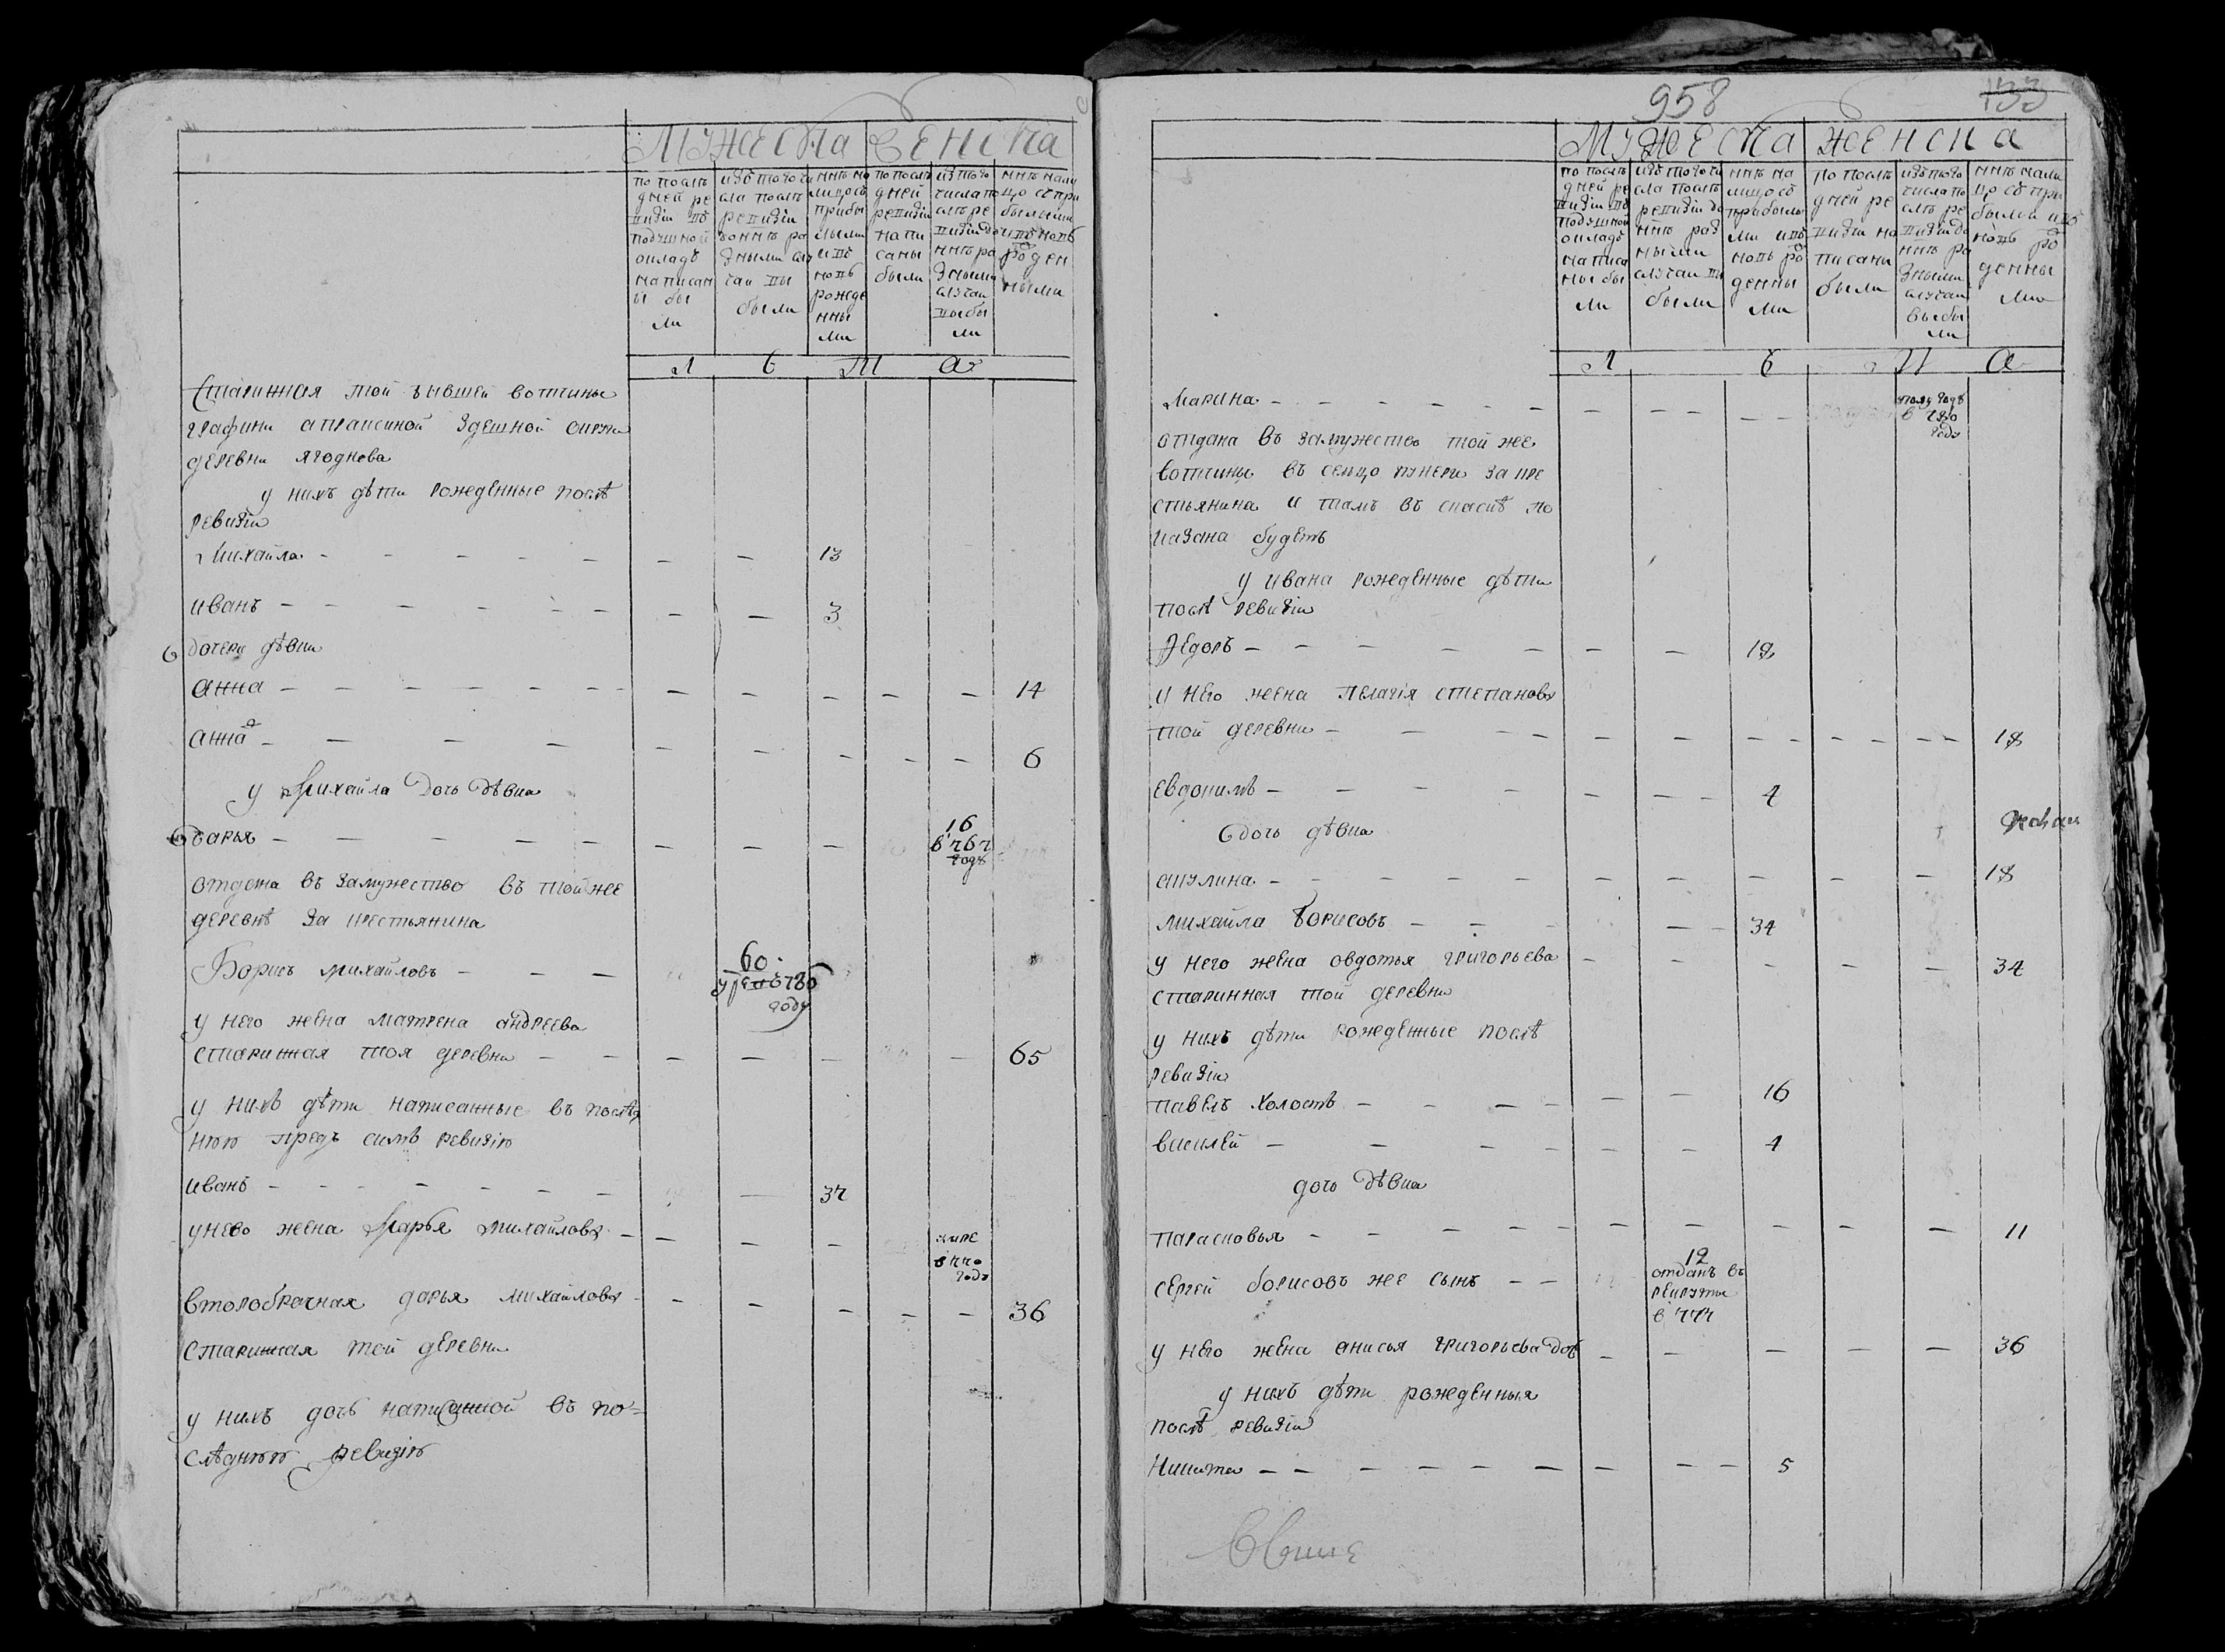 мужеска женска
по посль
дней ре
визіи въ
подушной
окладъ
написан
ы бы
ли
изъ того чи
сла послъ
ревизіи
до ннъ ра
зными слу
чаи вы
были
ннъ на
лицо съ
прибы
лыми
и въ
новь
рожде
нны
ми
по послъ
дней
ревизіи
напи
саны
были
изъ того
числа по
слъ ре
визіи до
ннъ ра
зными
случаи
выбы
ли
ннъ нали
цо съ при
былыми
и въ новь
рожден
ными
л е т а
старинная той бывшей вотчины
графини апраксиной здешной округи
деревни ягоднова
у нихъ дѣти рожденные послѣ
ревизіи
михайла 13
иванъ 3
дочери дѣвки
анна 14
анна 2 6
у михайла дочь дѣвка
дарья 16
в 767
годъ
отдана въ замужество въ той же
деревнѣ за крестьянина
Борисъ михайловъ 60
умре въ 780
году
у него жена матрена андреева
старинная тоя деревни 65
у нихъ дѣти написанные въ послѣд
нюю предъ симъ ревизію
иванъ 37
у нево жена марья михайлова умре
в 770
годъ
второбрачная дарья михайлова 36
старинная той деревни
у нихъ дочь написанной въ по=
слѣднюю ревизію
958 133
мужеска женска
по послъ
дней ре
визіи въ
подушной
окладъ
написа
ны бы
ли
изъ того чи
сла послъ
ревизіи до
ннъ раз
ными
случаи вы
были
ннъ на
лицо съ
прибылы
ми и въ
новь ро
жденны
ми
по послъ
дней ре
визіи на
писаны
были
изъ того
числа по
слъ ре
визіи до
ннъ ра
зными
случаи
выбы
ли
ннъ нали
цо съ при
былыи и въ
новь ро
жденны
ми
л е т а
марина
в 780
году
отдана въ замужество той же
вотчины въ сельцо за кре
стьянина и тамъ въ скаскѣ по
казана будетъ
у ивана рожденные дѣти
послѣ ревизіи
Ѳедоръ 18
у него жена пелагія степанова
той деревни 18
евдокимъ 4
дочь дѣвка
акулина 18
михайла борисовъ 34
у него жена овдотья григорьева 34
старинная той деревни
у нихъ дѣти рожденные послѣ
ревизіи
павелъ холостъ 16
василей 4
дочь дѣвка
парасковья 11
сергей борисовъ же сынъ 12
отданъ въ
рекруты
в 774
у него жена анисья григорьева дочь 36
у нихъ дѣти рожденныя
послѣ ревизіи
Никита 5